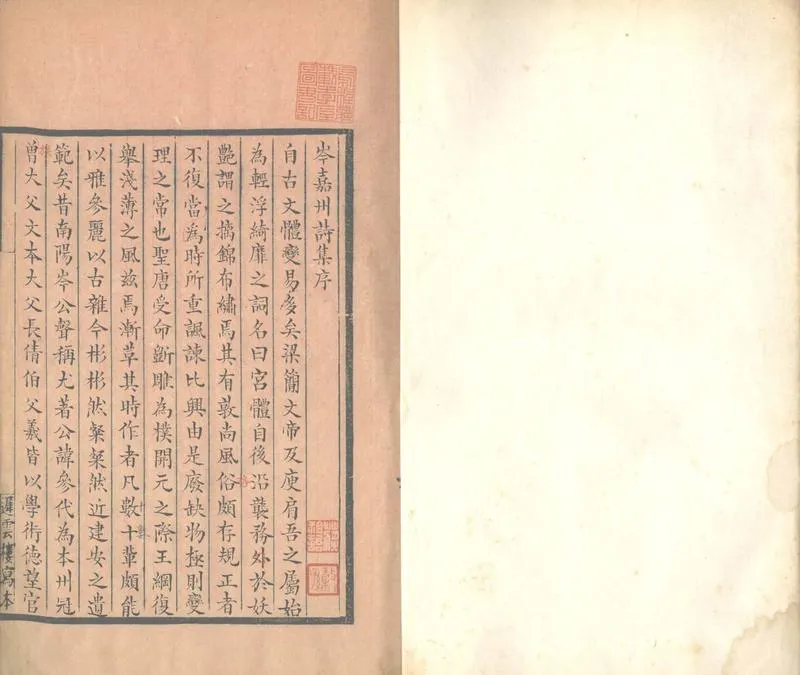 岑嘉州詩集序
自古文體變易多矣梁簡文帝及庾肩吾之屬始
為輕浮綺靡之詞名曰宮體自後沿襲務外於妖
艷謂之摛錦布繡焉其有敦尚風俗頗存規正者
不復當為時所重諷諫比興由是廢缺物極則變
理之常也聖唐受命斲雕為樸開元之際王綱復
舉淺薄之風茲焉漸革其時作者凡數十輩頗能
以雅參麗以古雜今彬彬然粲粲然近建安之遺
範矣昔南陽岑公聲稱尤著公諱參代為本州冠
曾大父文本大父長倩伯父羲皆以學術德望官
遲雲樓寫本